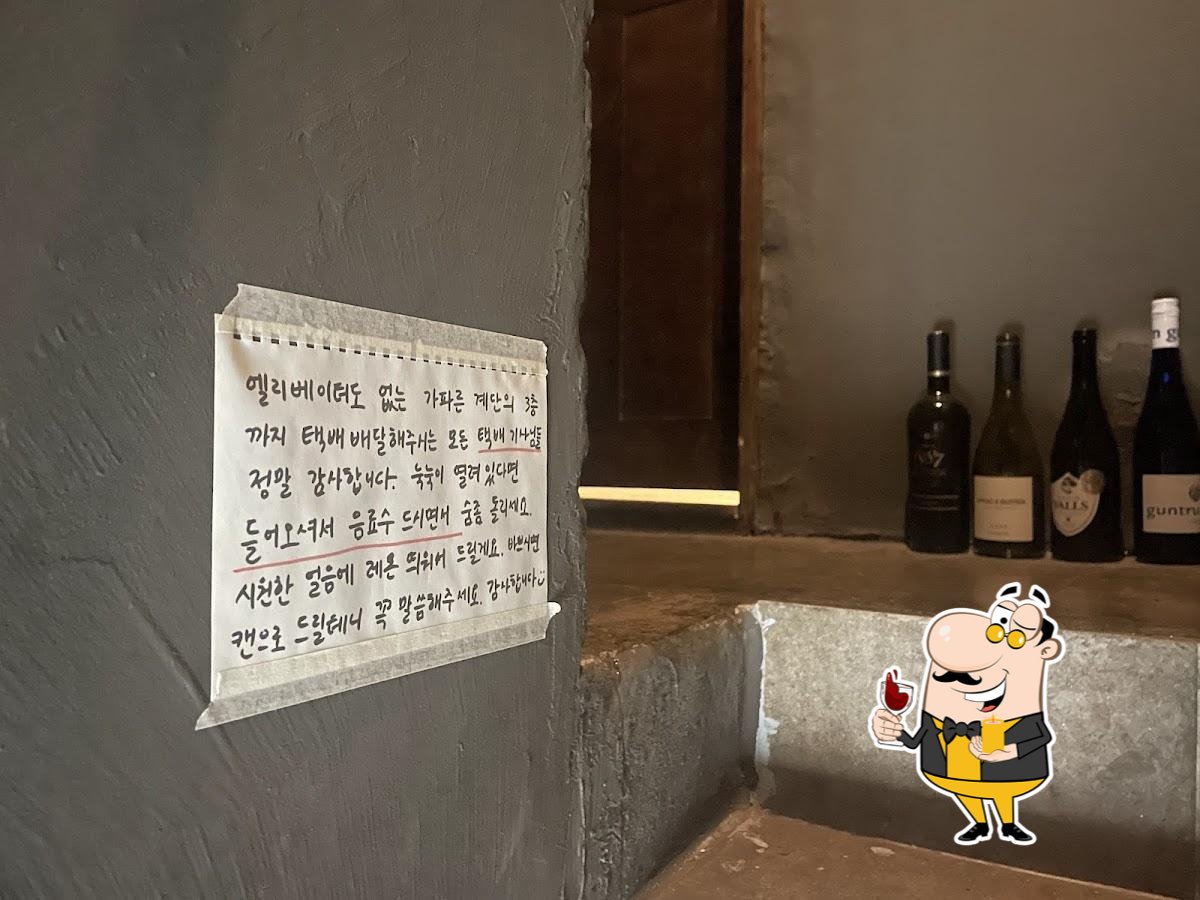 엘리베이터도 없는 가파른 계단의 3층
까지 택배 배달해주시는 모든 택배 기사님들
정말 감사합니다. 눅눅이 열려있다면
들어오셔서 음료수 드시면서 숨좀 돌리세요.
시원한 얼음에 레몬 띄워서 드릴게요. 바쁘시면
캔으로 드릴테니 꼭 말씀해주세요. 감사합니다
guntru